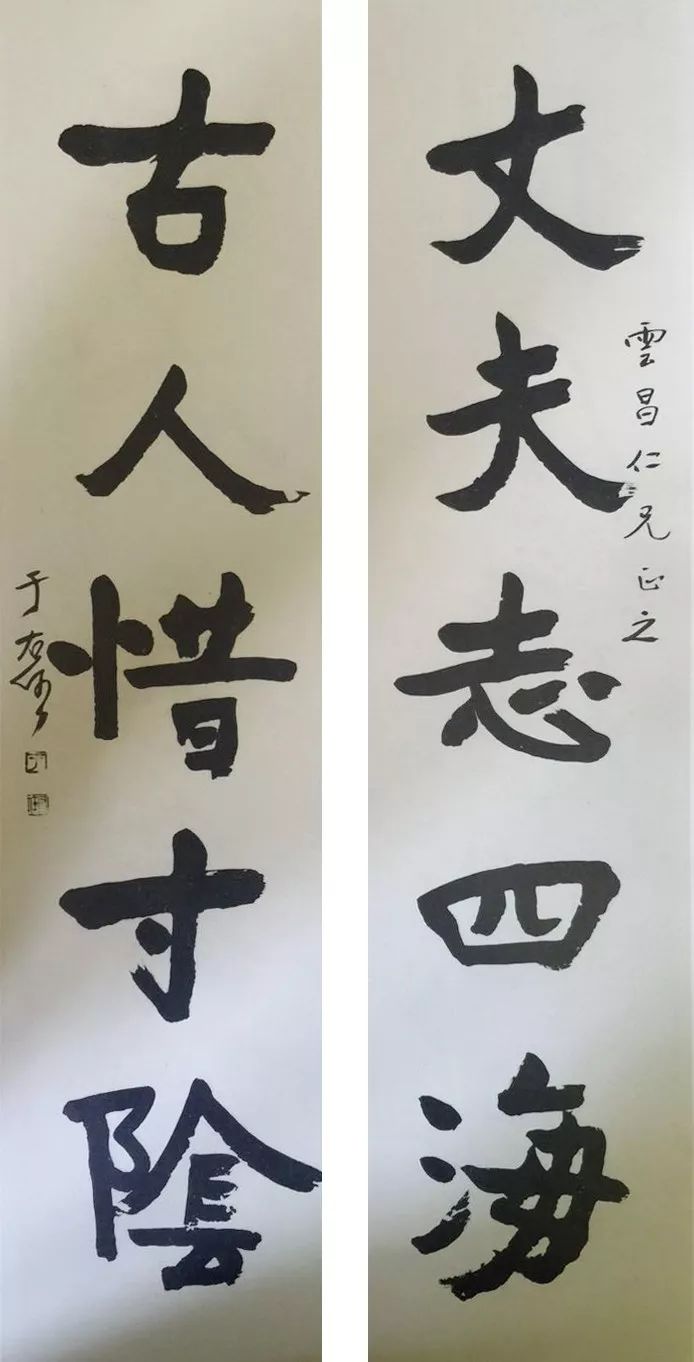 丈夫志四海
雲昌仁兄正之
古人惜寸陰
于右任